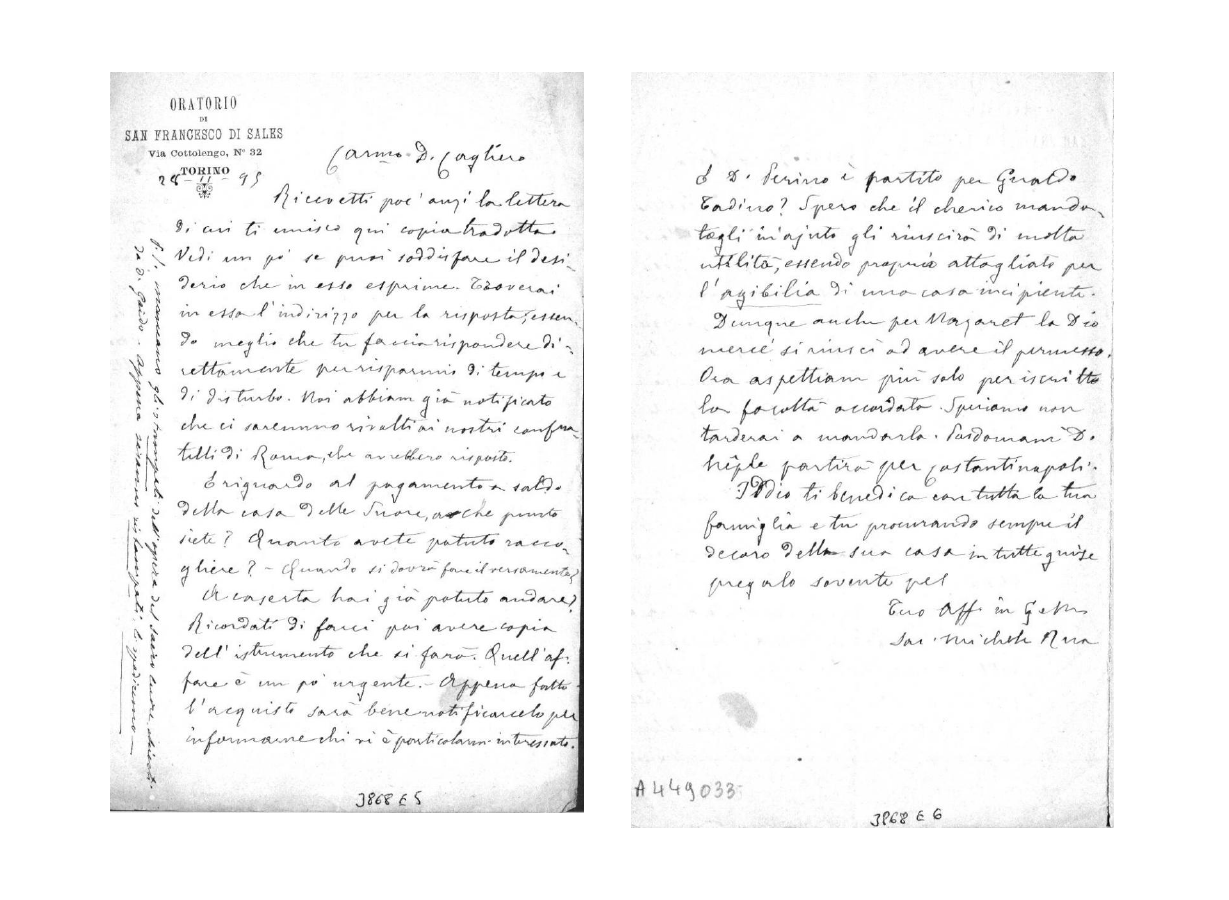 ORATORIO
DI
SAN FRANCESCO DI SALES
Via Cottolengo, Nº 32
TORINO
28-11-95
Carmo D. Cagliero
Ricevetti poc'anzi la lettera
di cui ti unisco qui copia tradotta
Vedi un po' se puoi soddisfare il desi-
derio che in esso esprime. Troverai
in essa l'indirizzo per la risposta, essen-
do meglio che tu faccia rispondere di-
rettamente per risparmio di tempo e
di disturbo. Noi abbiam già notificato
che ci saremmo rivolti ai nostri confra-
telli di Roma, che avrebbero risposto.
E riguardo al pagamento a saldo
della casa delle Suore, a che punto
siete? Quanto avete potuto racco-
gliere? - Quando si dovrà fare il versamento?
A Caserta hai già potuto andare?
Ricordati di farci poi avere copia
dell'istrumento che si farà. Quell'af-
fare è un po' urgente. - Appena fatto
l'acquisto sarà bene notificarcelo per
informarne chi vi è particolarm. interessato.
mancano gli stampati dell'opera del Sacro Cuore
da D. Guido. Appena saranno ristampati li spediremo
3868 E 5
E D. Perino è partito per Gualdo
Tadino? Spero che il cherico manda-
togli in ajuto gli riuscirà di molta
utilità, essendo proprio attagliato per
l'agibilia di una casa incipiente.
Dunque anche per Nazaret la Dio
mercé si riuscì ad avere il permesso.
Ora aspettiam più solo per iscritto
la facoltà accordata. Speriamo non
tarderai a mandarla. Posdomani D.
partirà per Costantinopoli.
Iddio ti benedica con tutta la tua
famiglia e tu procurando sempre il
decoro della sua casa in tutte guise
pregalo sovente pel
Tuo Aff. in G. e M.
Sac. Michele Rua
A449033
3868 E 6